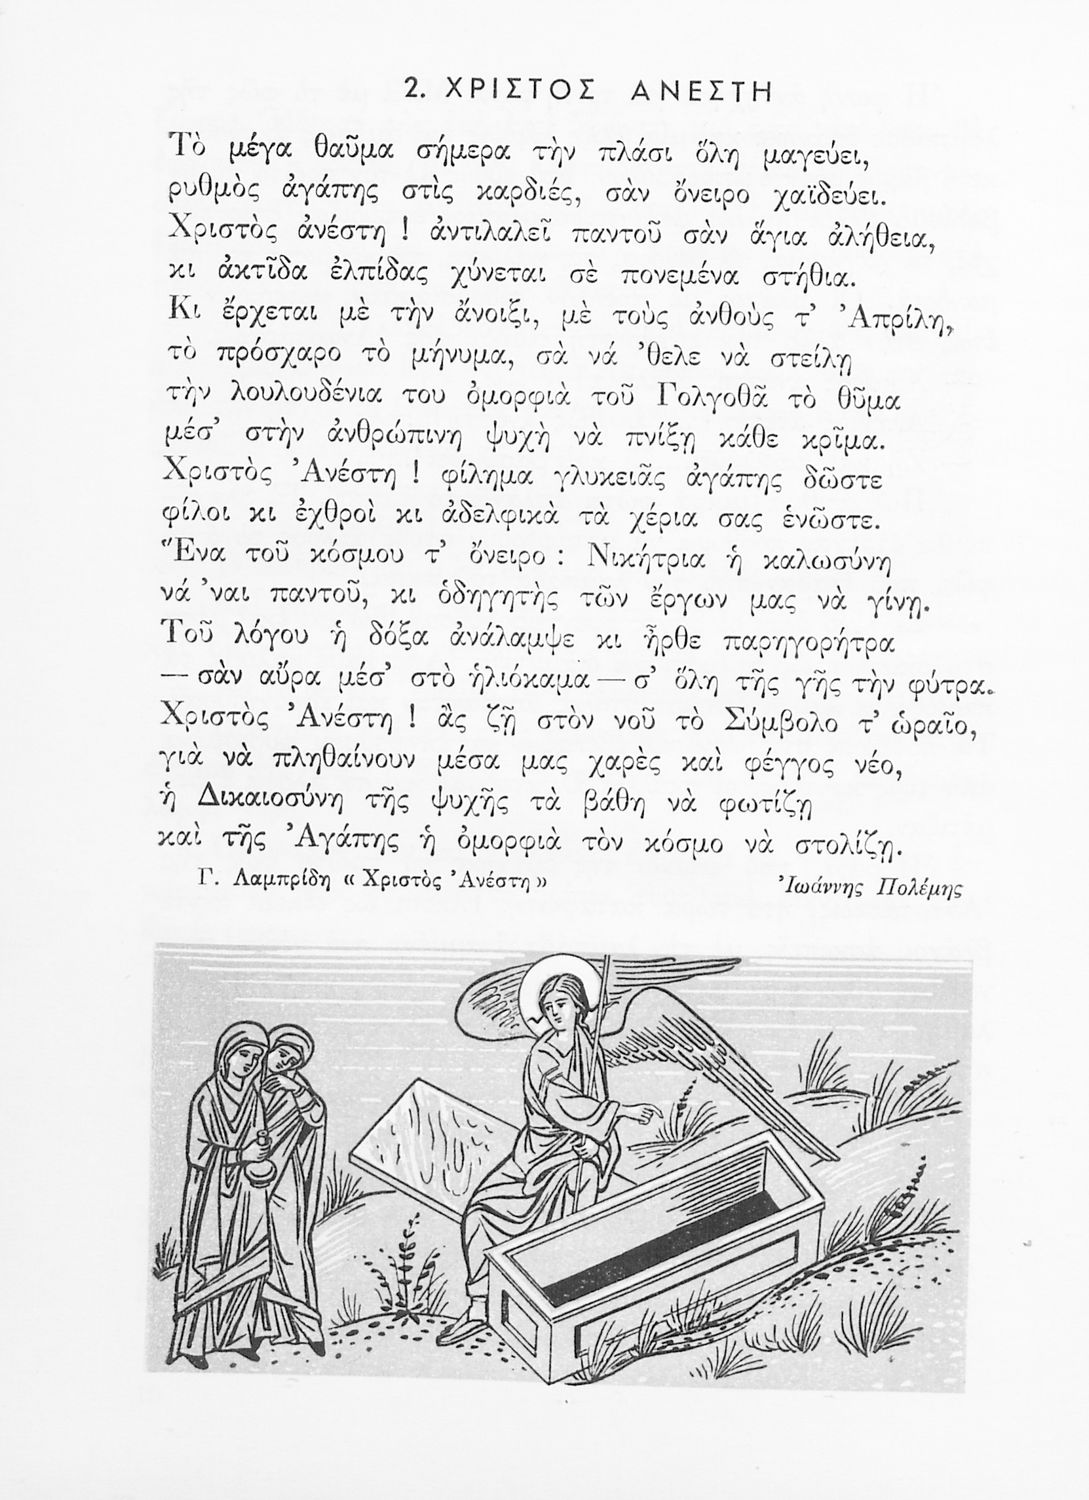 2. ΧΡΙΣΤΟΣ ΑΝΕΣΤΗ
Τὸ μέγα θαῦμα σήμερα τὴν πλάσι ὅλη μαγεύει,
ρυθμὸς ἀγάπης στὶς καρδιές, σὰν ὄνειρο χαϊδεύει.
Χριστὸς ἀνέστη ! ἀντιλαλεῖ παντοῦ σὰν ἅγια ἀλήθεια,
κι ἀκτῖδα ἐλπίδας χύνεται σὲ πονεμένα στήθια.
Κι ἔρχεται μὲ τὴν ἄνοιξι, μὲ τοὺς ἀνθοὺς τ' Ἀπρίλη,
τὸ πρόσχαρο τὸ μήνυμα, σὰ νά 'θελε νὰ στείλῃ
τὴν λουλουδένια του ὀμορφιὰ τοῦ Γολγοθᾶ τὸ θῦμα
μέσ' στὴν ἀνθρώπινη ψυχὴ νὰ πνίξῃ κάθε κρῖμα.
Χριστὸς Ἀνέστη ! φίλημα γλυκειᾶς ἀγάπης δῶστε
φίλοι κι ἐχθροὶ κι ἀδελφικὰ τὰ χέρια σας ἑνῶστε.
Ἕνα τοῦ κόσμου τ' ὄνειρο : Νικήτρια ἡ καλωσύνη
νά 'ναι παντοῦ, κι ὁδηγητὴς τῶν ἔργων μας νὰ γίνῃ.
Τοῦ λόγου ἡ δόξα ἀνάλαμψε κι ἦρθε παρηγορήτρα
— σὰν αὔρα μέσ' στὸ ἡλιόκαμα — σ' ὅλη τῆς γῆς τὴν φύτρα.
Χριστὸς Ἀνέστη ! ἂς ζῇ στὸν νοῦ τὸ Σύμβολο τ' ὡραῖο,
γιὰ νὰ πληθαίνουν μέσα μας χαρὲς καὶ φέγγος νέο,
ἡ Δικαιοσύνη τῆς ψυχῆς τὰ βάθη νὰ φωτίζῃ
καὶ τῆς Ἀγάπης ἡ ὀμορφιὰ τὸν κόσμο νὰ στολίζῃ.
Γ. Λαμπρίδη « Χριστὸς Ἀνέστη » Ἰωάννης Πολέμης